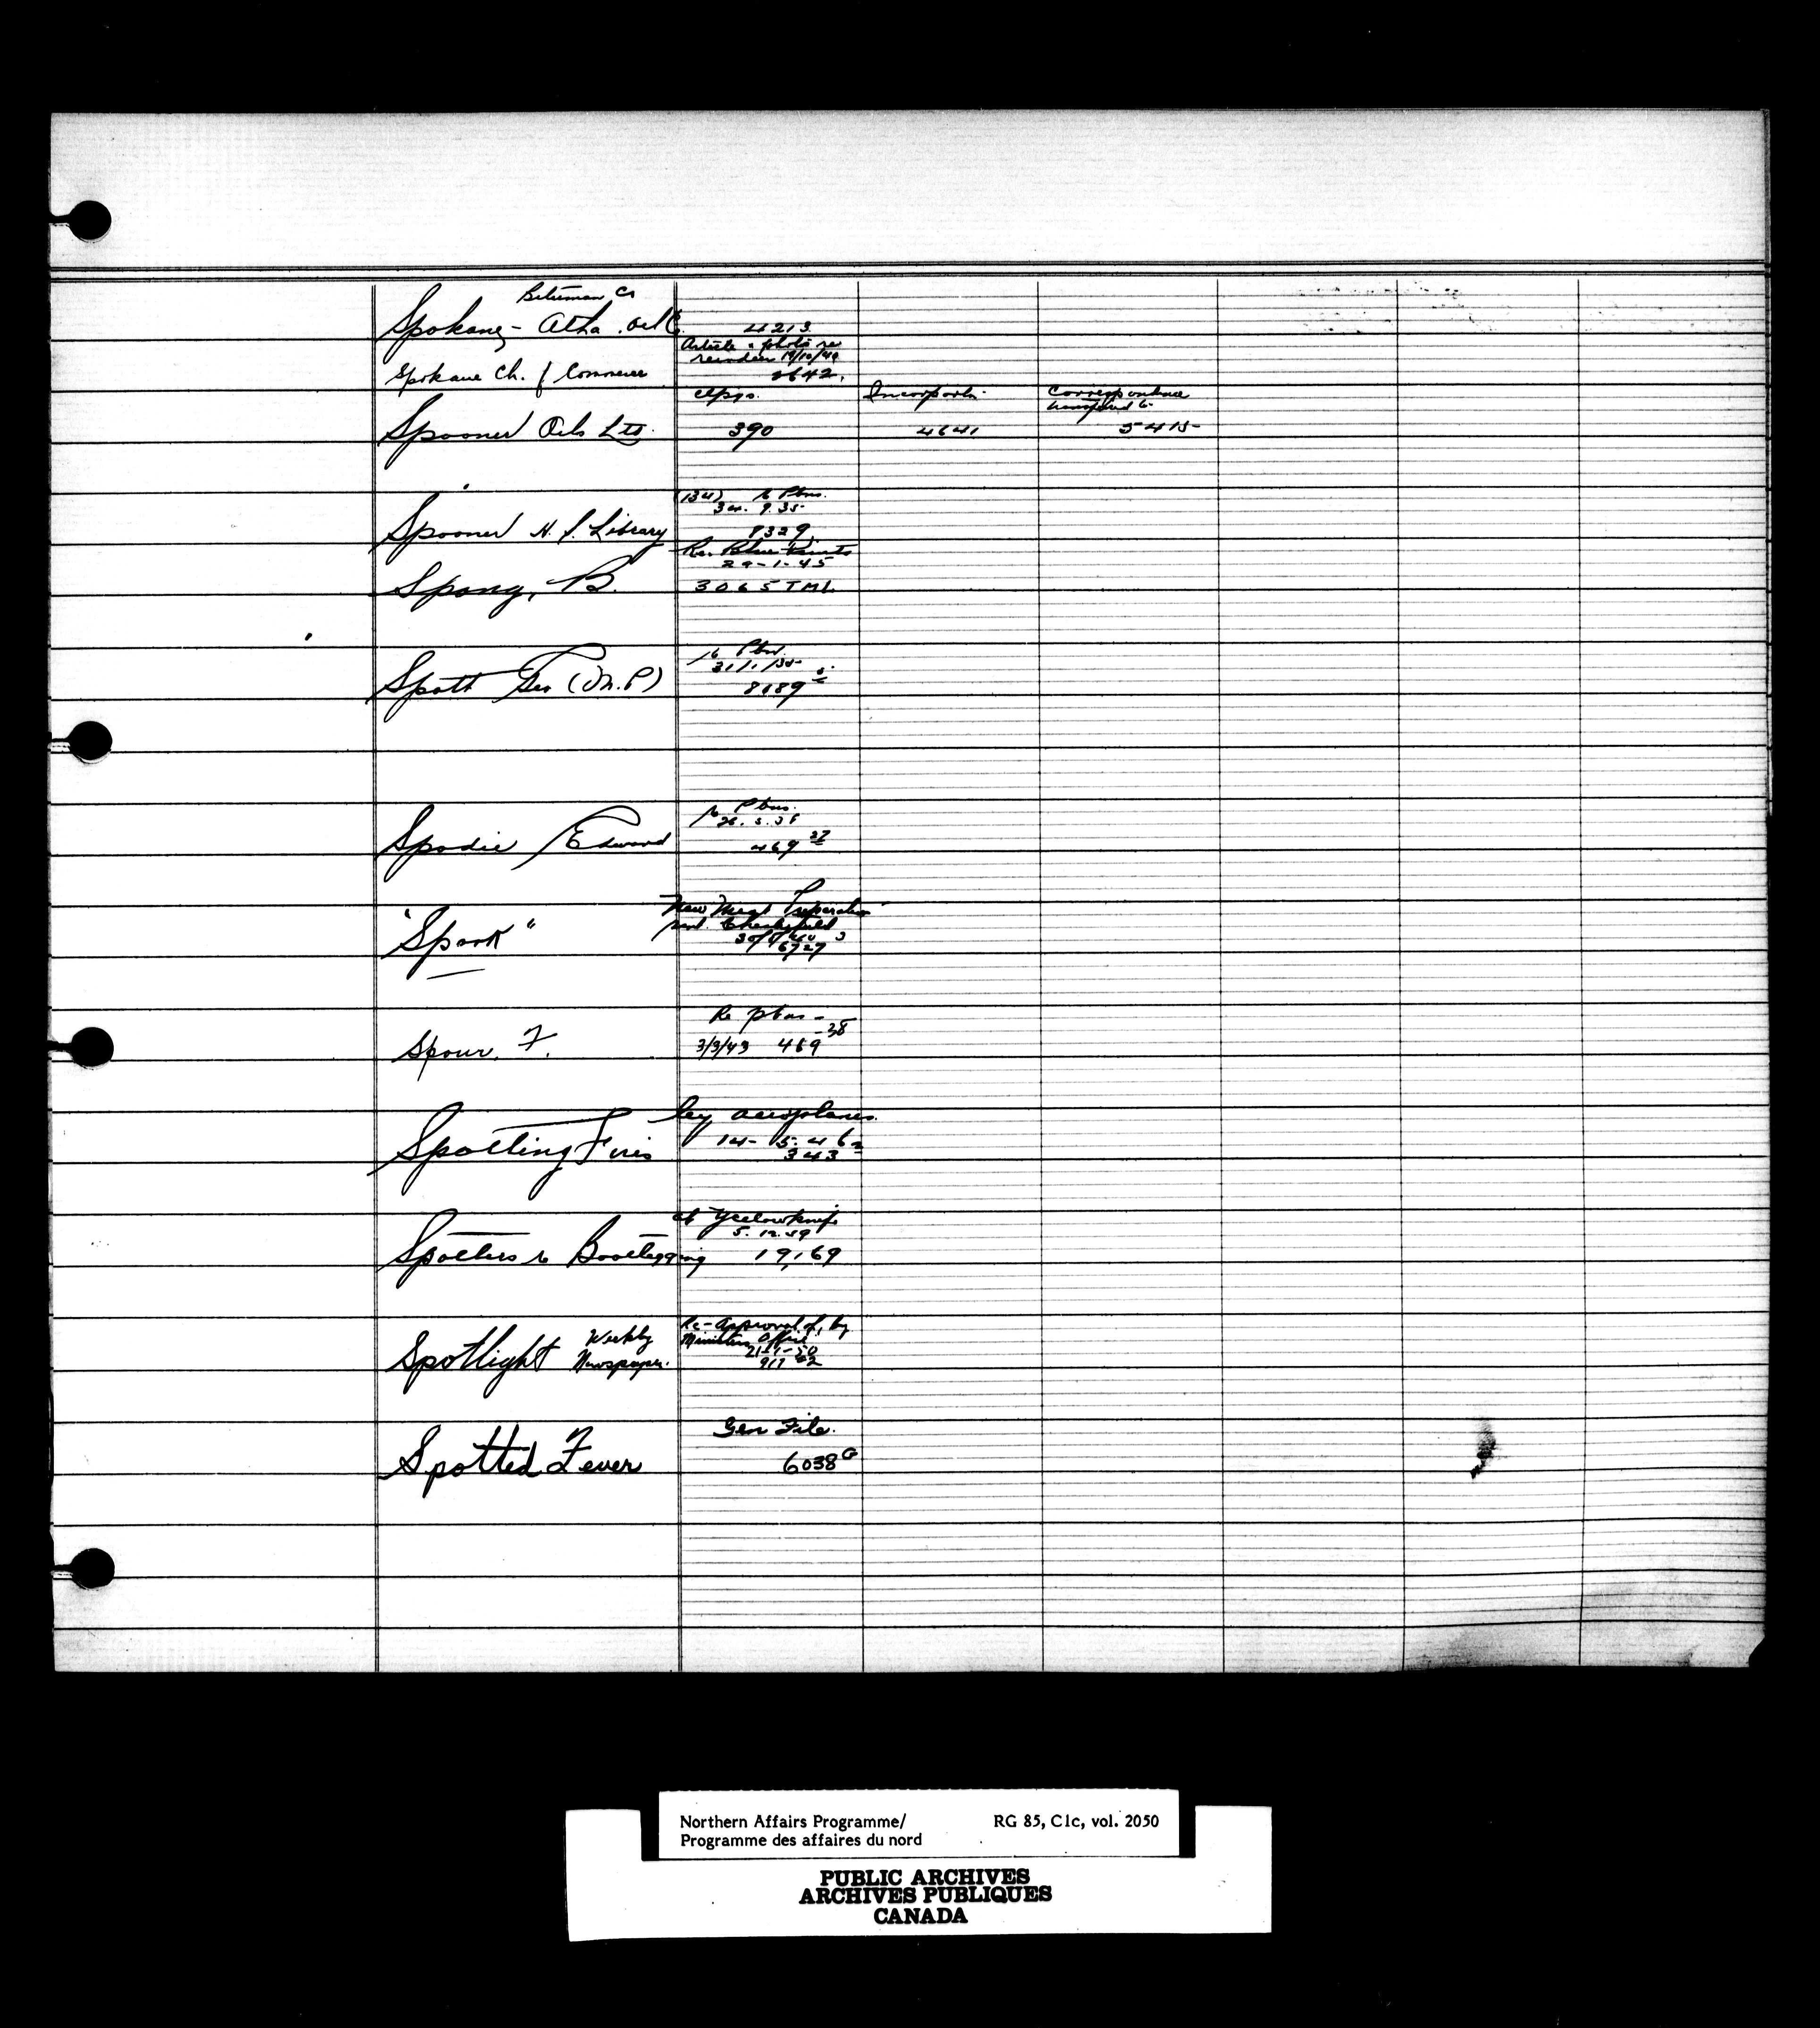 Bitumen Co
Spokane - Atha. Oil Co. 4213
Article & photo re
reindeer 19/10/40
Spokane Ch. of Commerce 2642.
Clpgs. Incorportn. Correspondence
transferred to
Spooner Oils Ltd. 390 4641 5415
(134) re Pbns.
34. 9.35
Spooner H. S. Library 8329
Re. Blue Prints
29-1-45
Spong, B. 3065 TML
re Pbn.
31/1/35
Spott Geo (M.P) 8189
re Pbns.
Spodie Edward 469 27
New Meat Preparation
"Spork" 6727 3
Re pbns -
Spour, F. 3/3/43 469 -38
by aeroplanes.
14-5-46
Spotting Fires 343 2
at Yellowknife
5.12.39
Spotters re Bootlegging 19,169
Re-Approval of, by
Weekly Ministers Office
21-1-50
Spotlight Newspaper. 917 62
Gen File.
Spotted Fever 6038 G
Northern Affairs Programme/ RG 85, C1c, vol. 2050
Programme des affaires du nord
PUBLIC ARCHIVES
ARCHIVES PUBLIQUES
CANADA